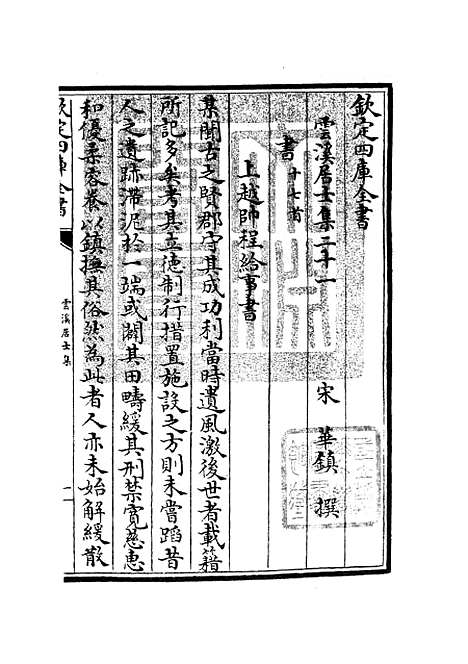 欽定四庫全書
雲溪居士集二十一
宋 華鎮 撰
書 十七首
上越帥程給事書
某聞古之賢郡守其成功利當時遺風激後世者載籍
所記多矣考其立德制行措置施設之方則未嘗蹈昔
人之遺跡滯泥於一端或闢其田疇緩其刑禁寛慈惠
和優柔容養以鎮撫其俗然為此者人亦未始解緩散
欽定四庫全書
雲溪居士集